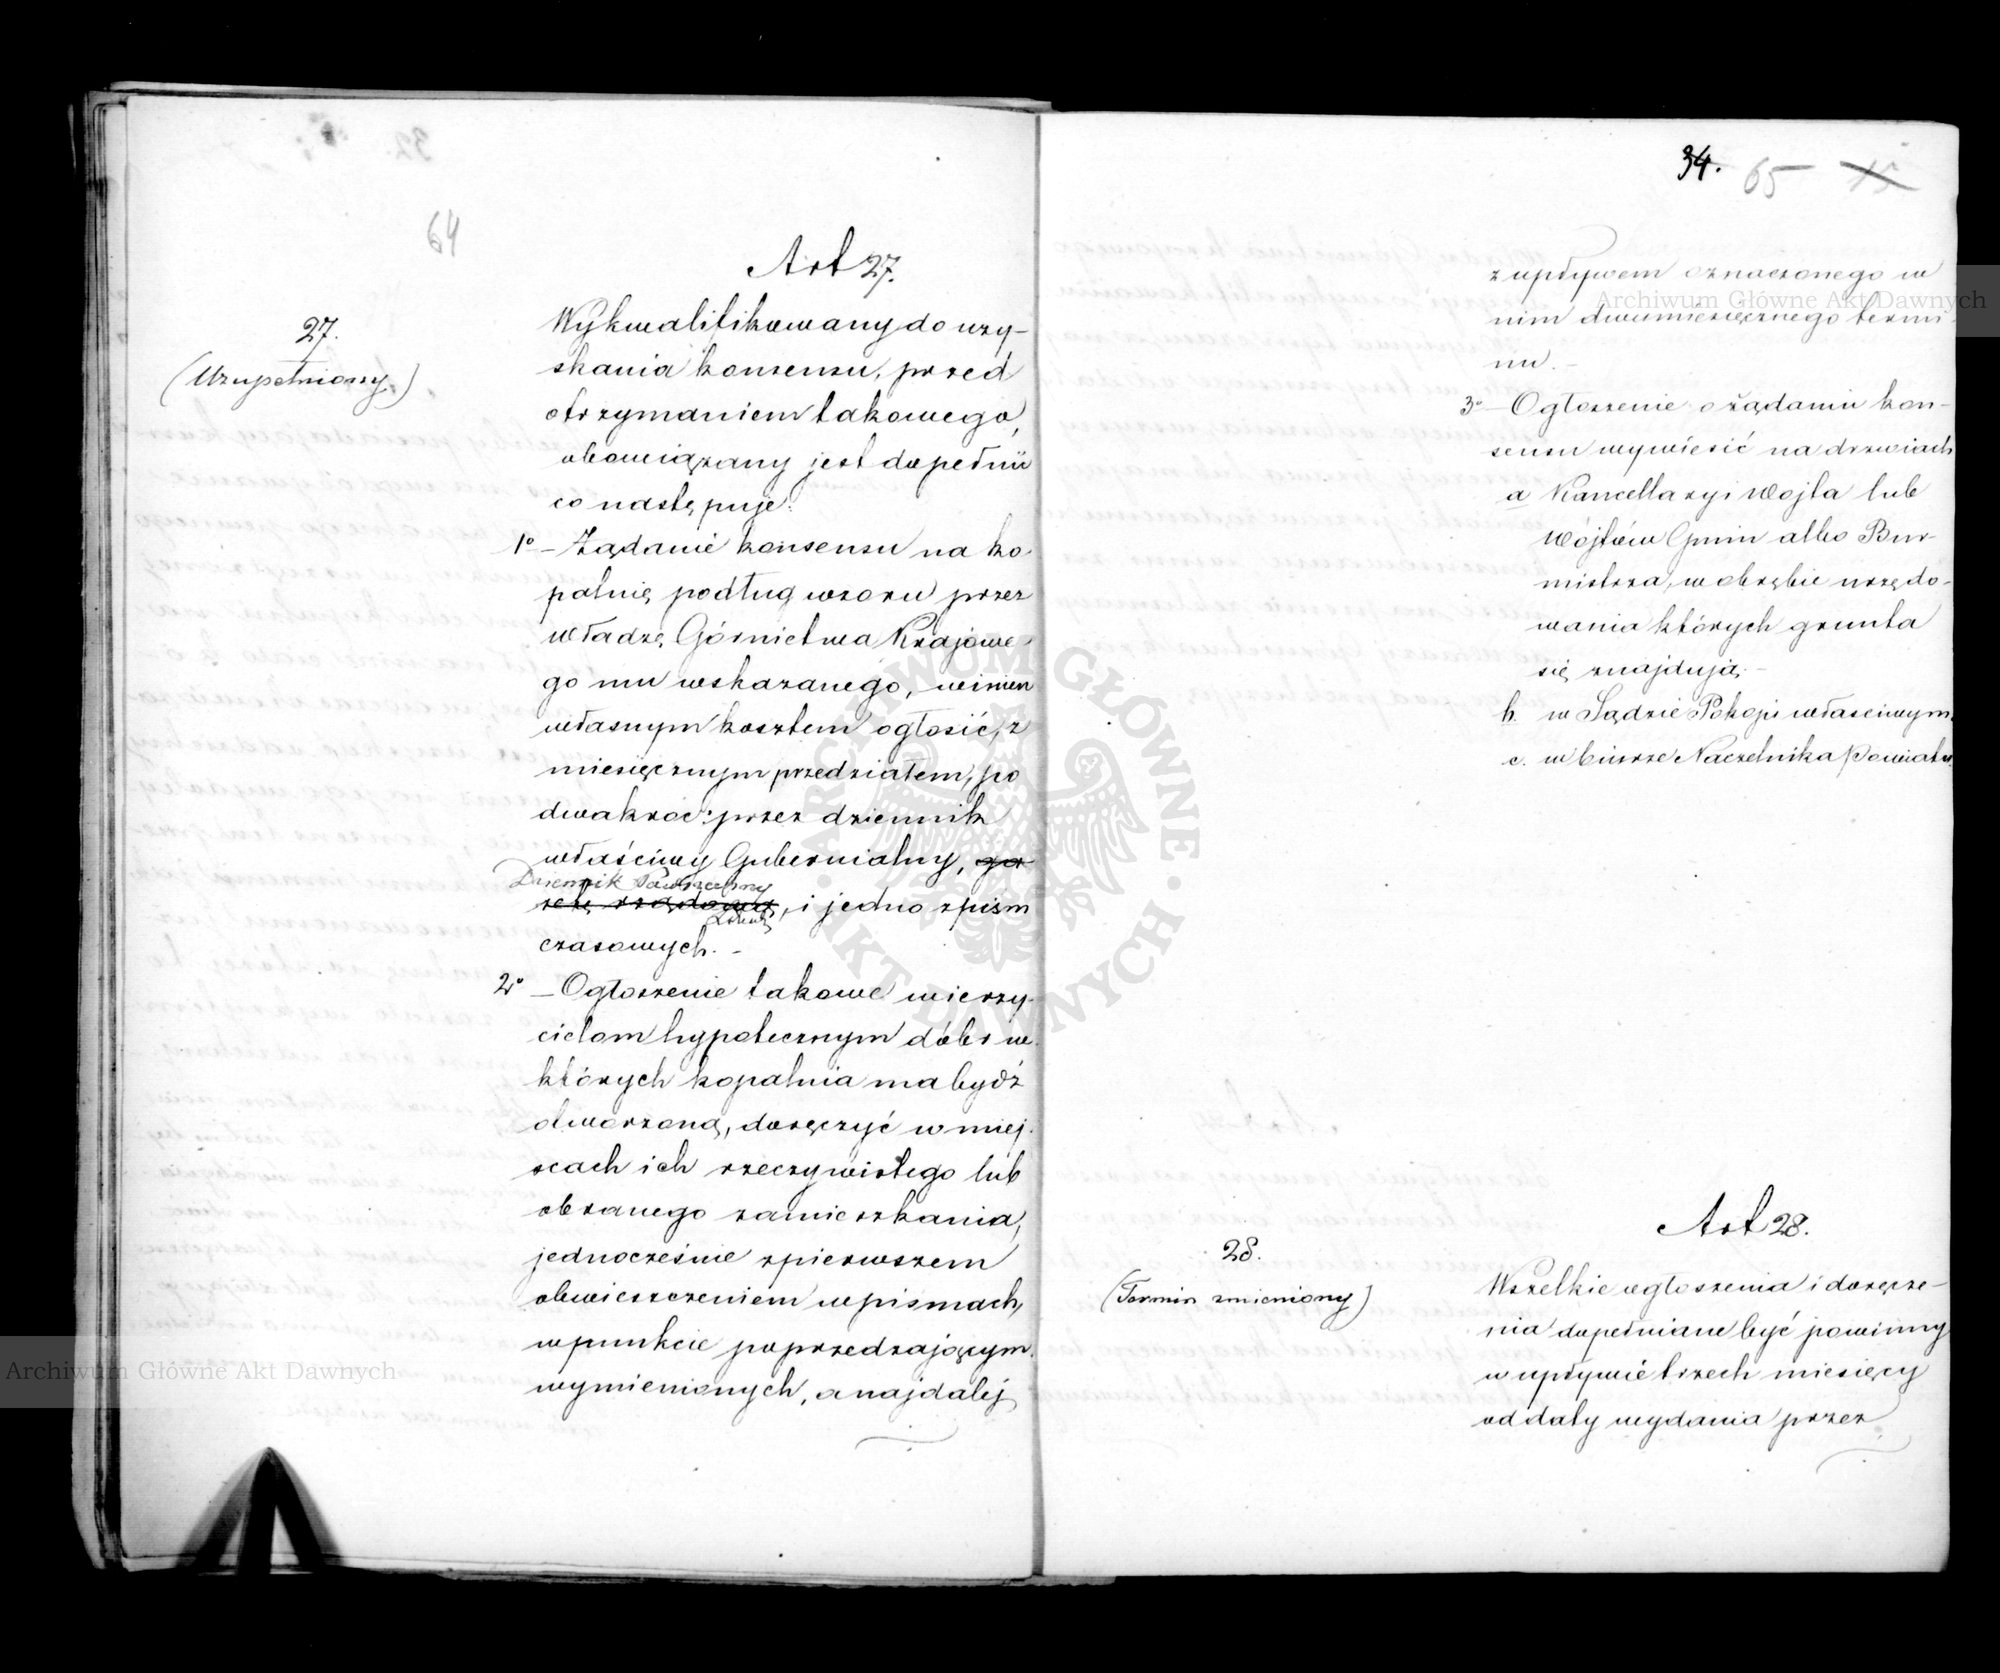 64
Art 27.
27.
(Uzupełniony.)
Wykwalifikowany do uzy-
skania konsensu, przed
otrzymaniem takowego,
obowiązany jest dopełnić
co następuje:
1o – Żądanie konsensu na ko-
palnię podług wzoru przez
władzę Górnictwa Krajowe-
go mu wskazanego, winien
własnym kosztem ogłosić, z
miesięcznym przedziałem, po
dwakroć: przez dziennik
właściwy Gubernialny, ga-
Dziennik Powszechny
zetę rządową, i jedno z pism
czasowych. –
2o – Ogłoszenie takowe wierzy-
cielom hypotecznym dóbr w
których kopalnia ma bydź
otworzona, doręczyć w miej-
scach ich rzeczywistego lub
obranego zamieszkania,
jednocześnie z pierwszem
obwieszczeniem w pismach,
w punkcie poprzedzającym
wymienionych, a najdalej
34. 65 75
z upływem oznaczonego w
nim dwumiesięcznego termi-
nu. –
3o – Ogłoszenie o żądaniu kon-
sensu wywiesić na drzwiach
a Kancellaryi Wójta lub
Wójtów Gmin albo Bur-
mistrza, w obrębie urzędo-
wania których grunta
się znajdują. –
b. w Sądzie Pokoju właściwym.
c. w biurze Naczelnika Powiatu.
Art 28.
28.
(Termin zmieniony)
Wszelkie ogłoszenia i doręcze-
nia dopełniane być powinny
w upływie trzech miesięcy
od daty wydania przez
Archiwum Główne Akt Dawnych
Archiwum Główne Akt Dawnych
ARCHIWUM GŁÓWNE AKT DAWNYCH